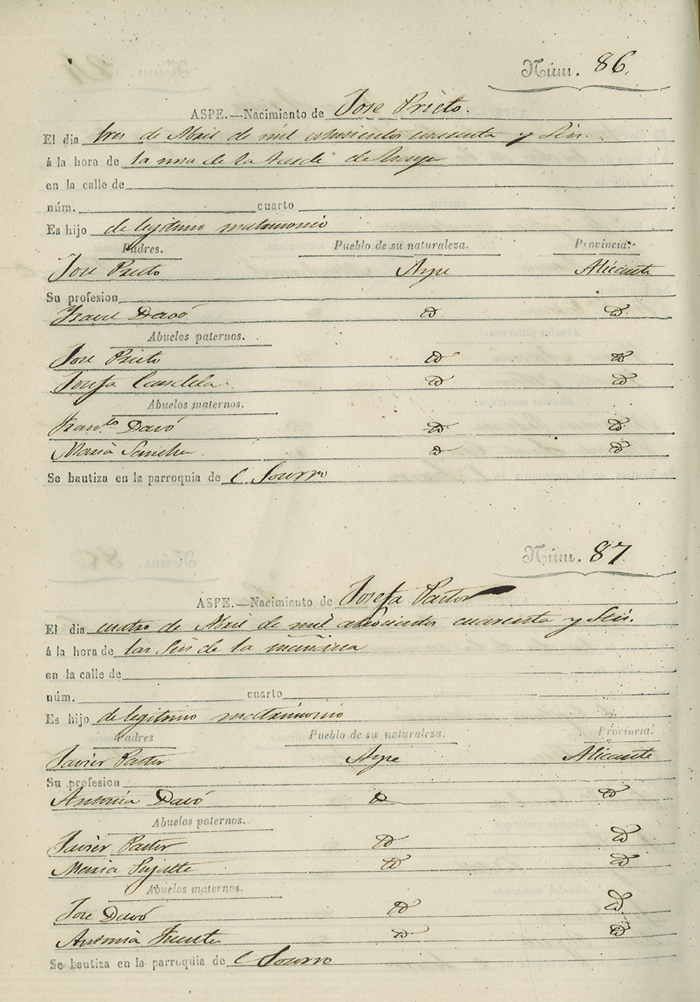 Núm. 86.
ASPE.—Nacimiento de Jose Prieto.
El dia tres de Abril de mil ochocientos cuarenta y Seis.
á la hora de la una de la tarde
en la calle de
núm. cuarto
Es hijo de legitimo matrimonio
Padres. Pueblo de su naturaleza. Provincia.
Jose Prieto Aspe Alicante
Su profesion
Davó id id
Abuelos paternos.
Jose Prieto id id
Josefa Candela id id
Abuelos maternos.
Fran.co Davó id id
Maria Sanchez id id
Se bautiza en la parroquia de
Núm. 87
ASPE.—Nacimiento de Josefa Pastor
El dia cuatro de Abril de mil ochocientos cuarenta y Seis.
á la hora de las Seis de la mañana
en la calle de
núm. cuarto
Es hijo de legitimo matrimonio
Padres Pueblo de su naturaleza. Provincia.
Javier Pastor Aspe Alicante
Su profesion
Antonia Davó id id
Abuelos paternos.
Javier Pastor id id
Maria id id
Abuelos maternos.
Jose Davó id id
Antonia id id
Se bautiza en la parroquia de